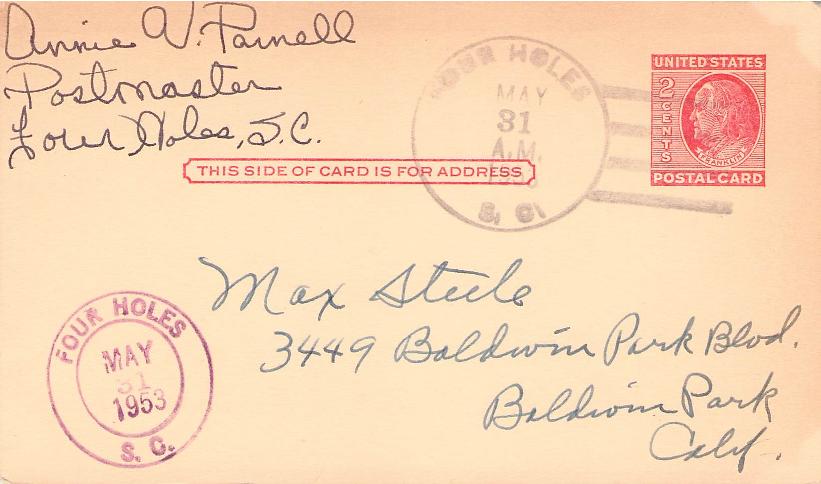 Annie V. Parnell
Postmaster
Four Holes, S.C.
THIS SIDE OF CARD IS FOR ADDRESS
FOUR HOLES
MAY
31
A.M.
1953
S. C.
UNITED STATES
2 CENTS
FRANKLIN
POSTAL CARD
Max Steele
3449 Baldwin Park Blvd.
Baldwin Park
Calif.
FOUR HOLES
MAY
31
1953
S. C.